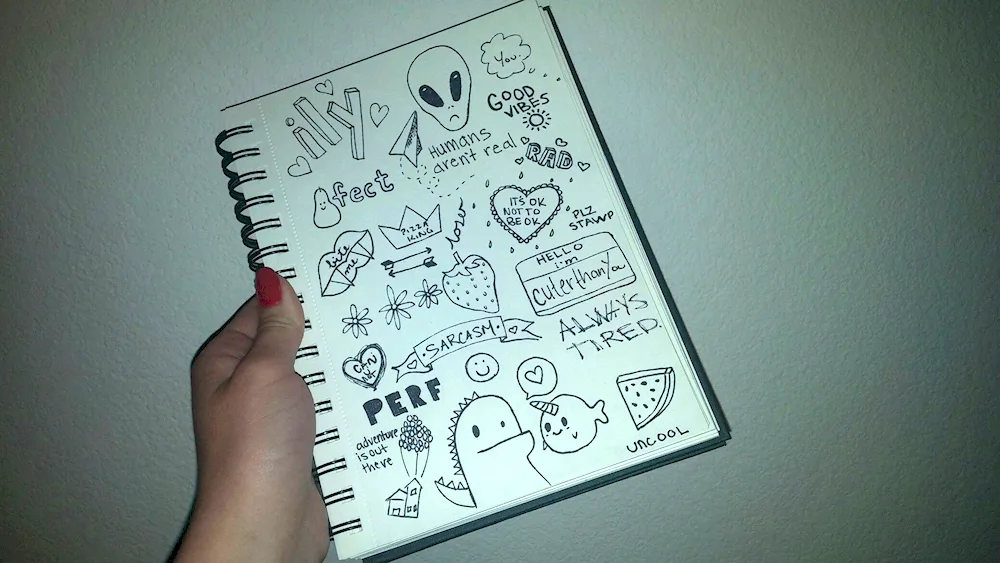 ily
You.
GOOD
VIBES
Humans
aren't real
RAD
fect
PIZZA
KING
loser
IT'S OK
NOT TO
BE OK
PLZ
STAWP
bite
me
HELLO
i'm
cuterthanYou
ALWAYS
TIRED.
SARCASM.
CAN
NOT
PERF
adventure
is out
there
UNCOOL